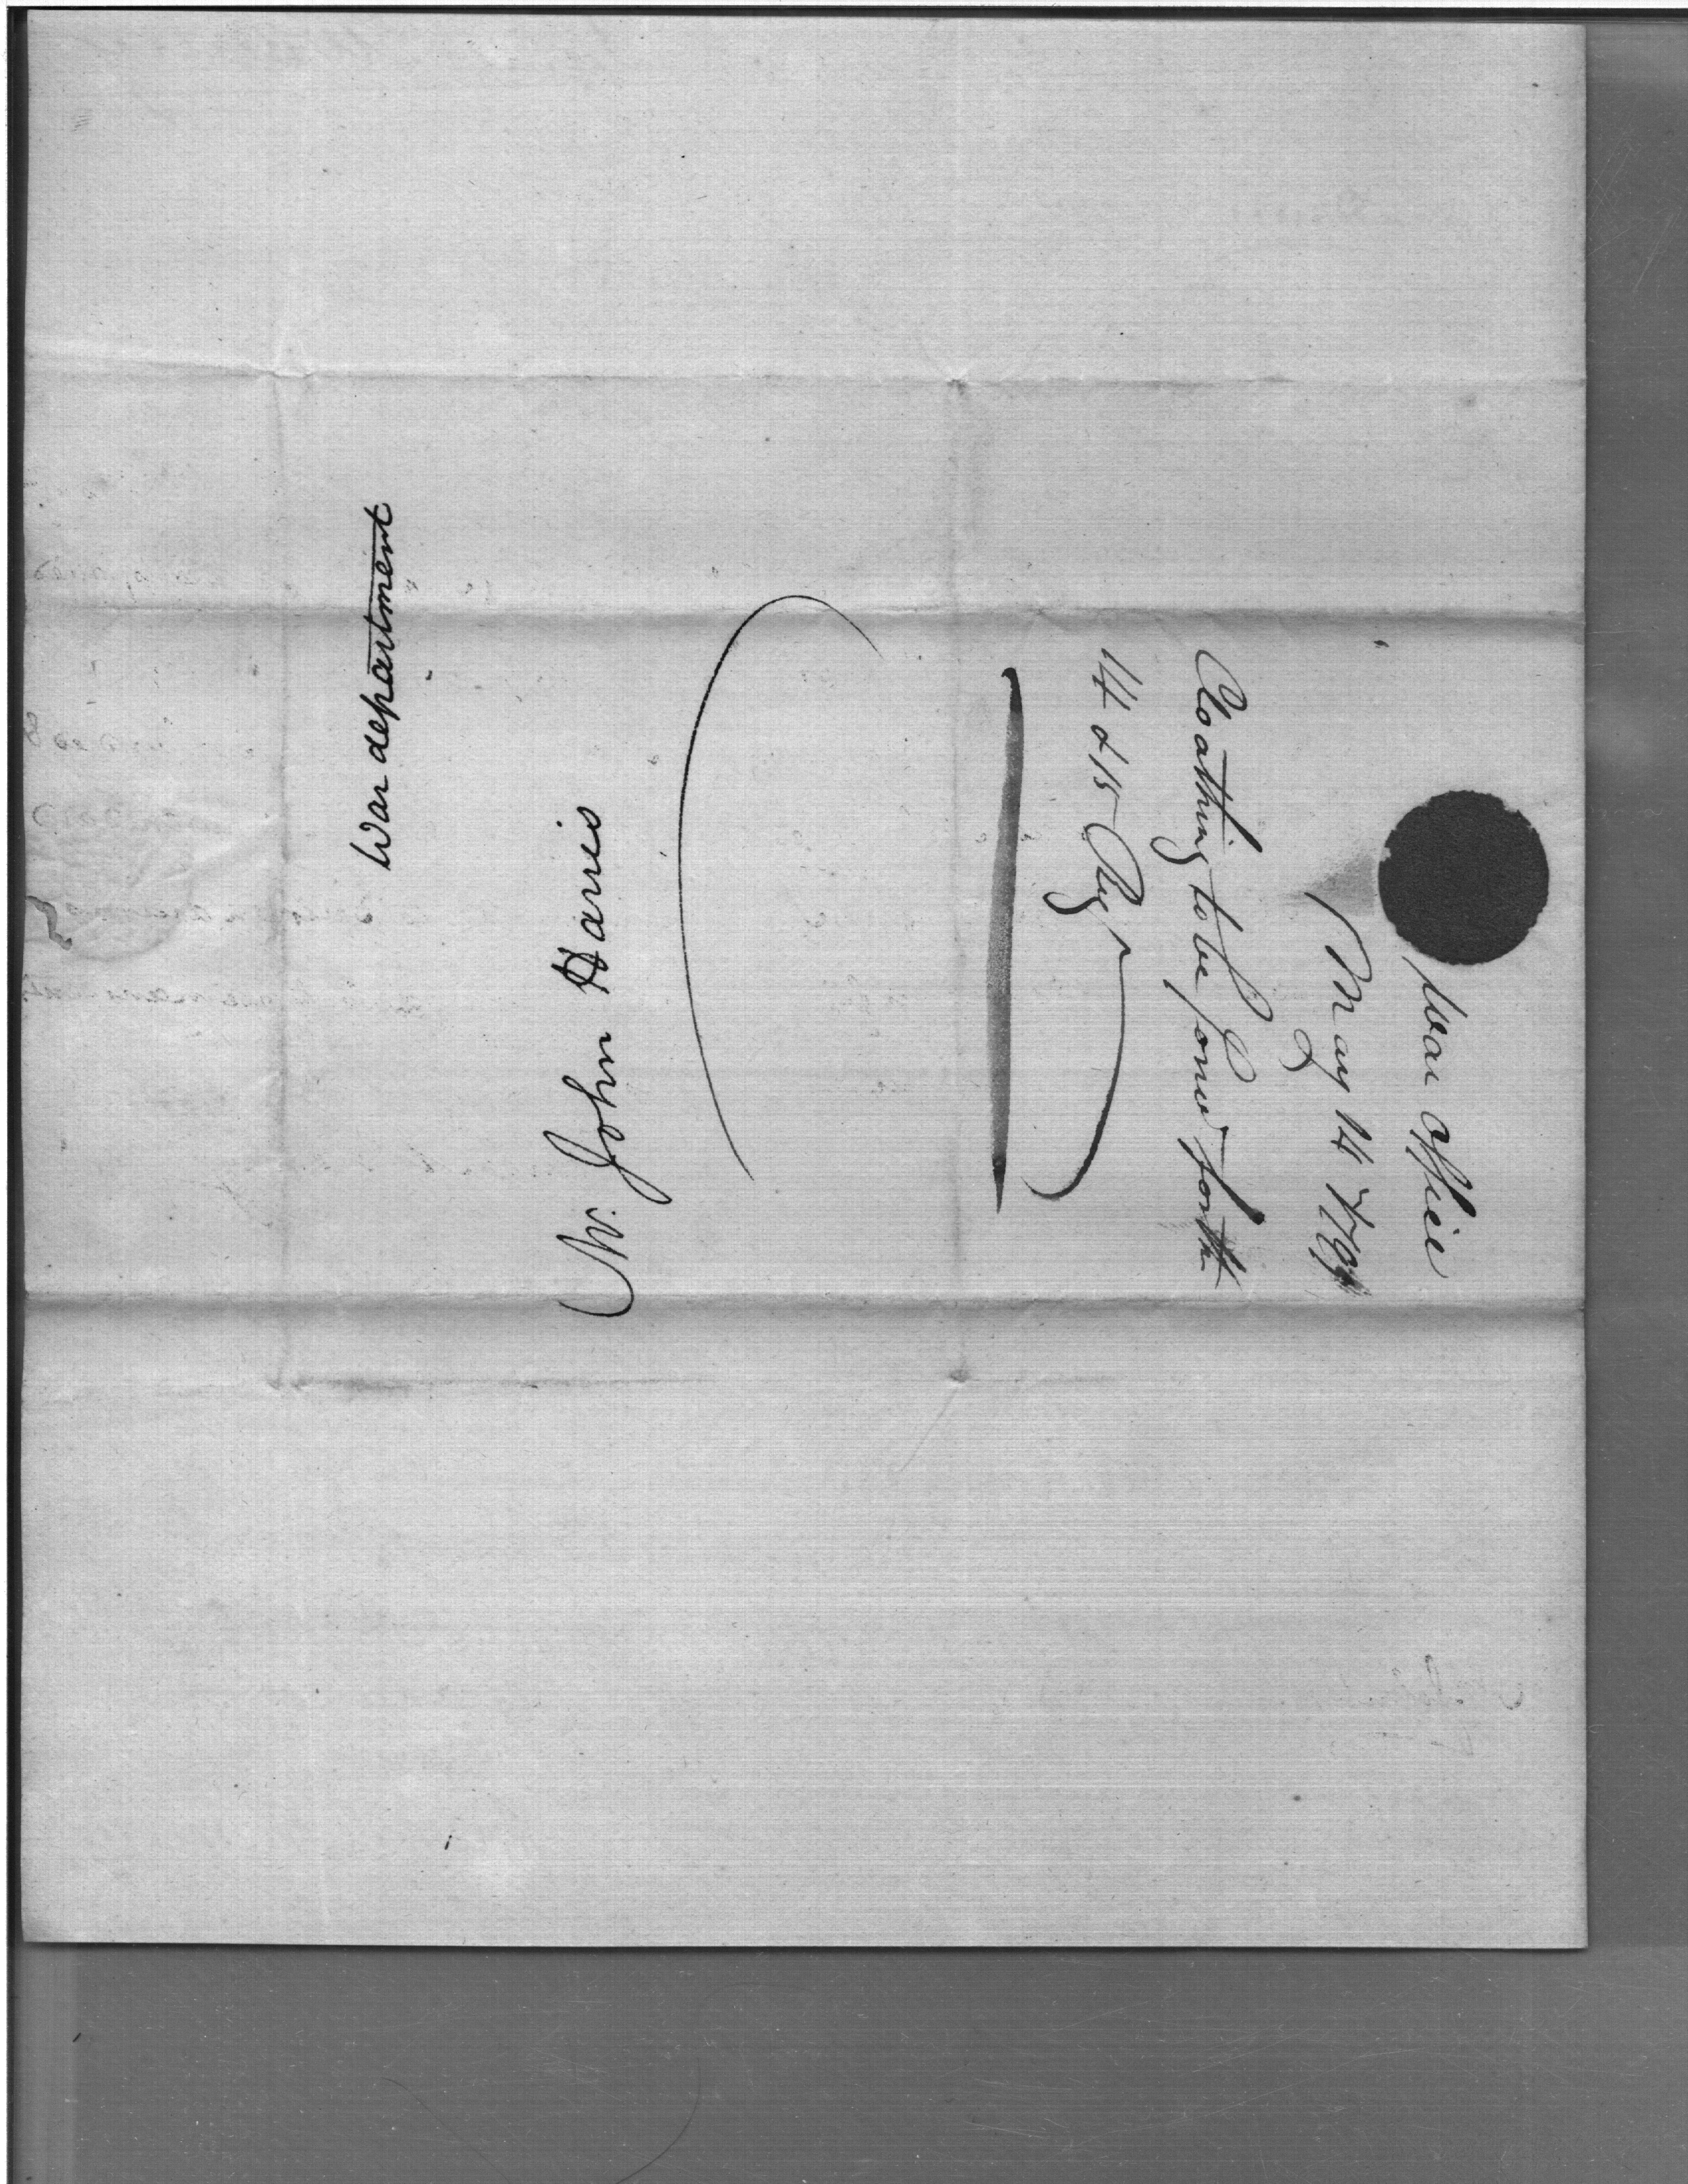 War department
Mr. John Harris
War Office
May 14 1799
Cloathing to be forwd for the
14 & 15 Regt